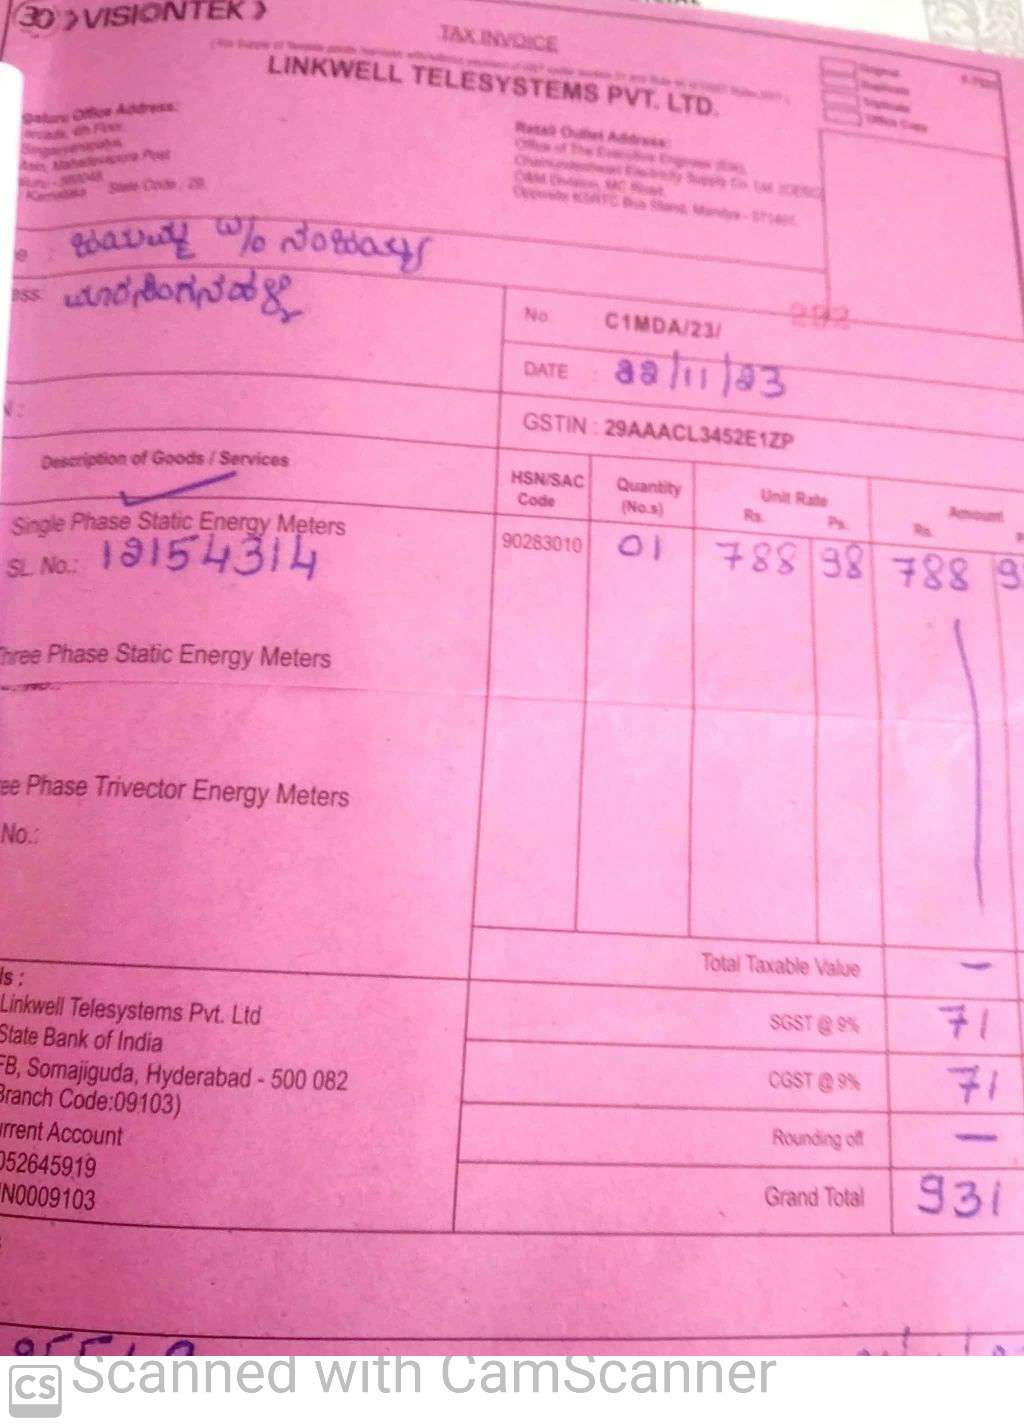 VISIONTEK
TAX INVOICE
LINKWELL TELESYSTEMS PVT. LTD.
Office Address:
4th Floor,
Mahadevapura Post
Karnataka State Code : 29
Retail Outlet Address:
Office of The Executive Engineer
Chamundeshwari Electricity Supply Co. Ltd
O&M Division, MC Road,
Opposite KSRTC Bus Stand, Mandya - 571401
Original
Duplicate
Triplicate
Office Copy
W/o
No. C1MDA/23/ 292
DATE : 22/11/23
GSTIN : 29AAACL3452E1ZP
Description of Goods / Services
HSN/SAC Code
Quantity (No.s)
Unit Rate Rs. Ps.
Amount Rs.
Single Phase Static Energy Meters 90283010 01 788 98 788
SL. No.: 12154314
Three Phase Static Energy Meters
Phase Trivector Energy Meters
No.:
Total Taxable Value –
SGST @ 9% 71
CGST @ 9% 71
Rounding off –
Grand Total 931
Linkwell Telesystems Pvt. Ltd
State Bank of India
Somajiguda, Hyderabad - 500 082
Branch Code:09103)
Account
052645919
N0009103
CS Scanned with CamScanner